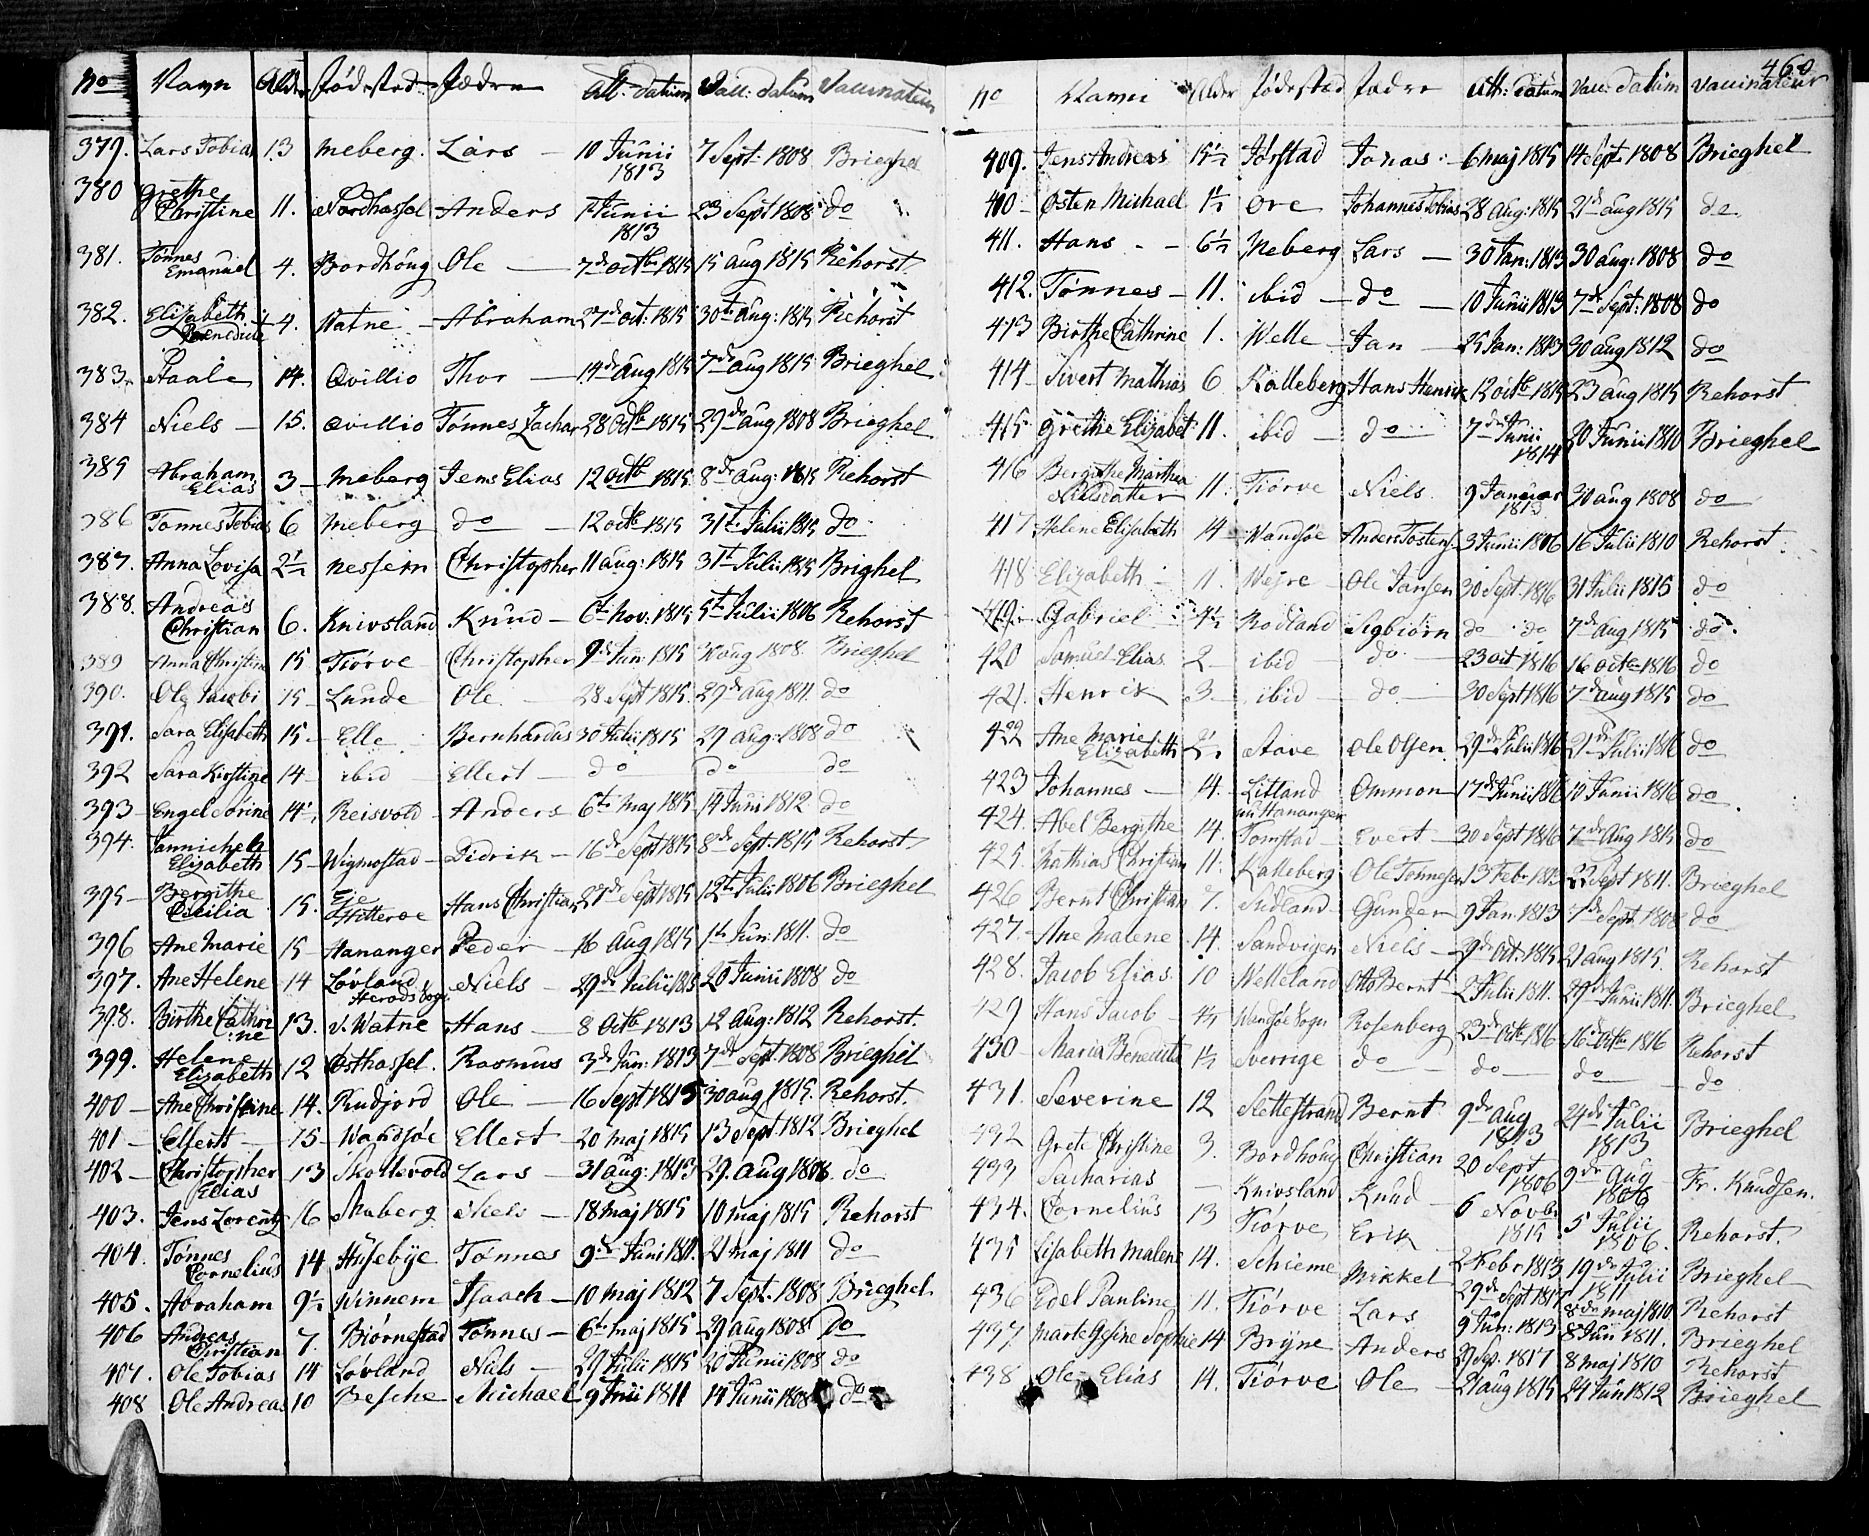 460
No Navn Alder Fødested Fædre Att: datum Vacc: datum Vaccinateur
379. Lars Tobias 13 Meberg. Lars — 10 Junii 1813 7 Sept: 1808 Brieghel
380 Grethe Christine 11. Nordhassel Anders 1 Junii 1813 23 Sept 1808 do
381. Tønnes Emanuel 4. Bordhoug Ole — 7de octbr 1815 15 aug 1815 Rehorst.
382. Elisabeth Benedicte 4. Watne — Abraham 27de oct. 1815 30te aug: 1815 Rehorst
383. Staale 14. Qvillio Thor — 14de aug 1815 7de aug 1815 Brieghel
384 Niels — 15. Qvillio Tønnes Zachar 28 Octb 1815 29de aug 1808 Brieghel
385 Abraham Elias 3 — Meberg Jens Elias 12 octb 1815 8de aug: 1815 Rehorst
386 Tønnes Tobias 6 Meberg do 12 octb 1815 31te Julii 1815 do
387. Anna Lovisa 2½ Nesseim Christopher 11 aug: 1815 31te Julii 1815 Brighel
388. Andreas Christian 6. Knivsland Knud — 6te Nov: 1815 5te Julii 1806 Rehorst
389 Anna Christine 15 Tiørve Christopher 9de Jun: 1815 30 aug 1808 Brieghel
390. Ole Jacobi 15 — Lunde Ole 28 Sept 1815 29de aug 1811. do
391. Sara Elisabeth 15 — Elle Bernhardus 30 Julii 1815 29 aug: 1808 do
392 Sara Kirstine 14 — ibid — Ellert — do do do
393 Engel Sørine 14½ Reisvold — Anders 6te maj 1815 14 Junii 1812 do
394. Jannicheh Elizabeth 15 — Wigmostad — Didrik — 16de Sept 1815 8de Sept: 1815 Rehorst
395 — Bergithe Cecilia 15. Eie Hitterøe Hans Christian 27de Sept 1815 12te Julii 1806 Brieghel
396 Ane Marie 15 — Hananger Peder — 16 Aug 1815 1te Jun: 1811. do
397. Ane Helene 14 Løvland Herods Sogn Niels — 29de Julii 1815 20 Junii 1808 do
398. Birthe Cathrine 13. v. Watne Hans — 8 Octb 1813 12 aug: 1812 Rehorst.
399. Helene Elizabeth 12 Østhassel. Rasmus 3de Jun: 1813 7de Sept. 1808 Brieghel
400 — Ane Christine 14. Rudjord Ole — 16 Sept 1815 30 aug 1815. Rehorst.
401 — Ellert 15 — Wandsøe Ellert — 20 maj 1815 13 Sept 1812 Brieghel
402 — Christopher Elias 13 Skollevold Lars — 31 aug: 1813 29. aug 1808 do
403. Jens Lorentz 16 Niels — 18 maj 1815 10 maj 1815 Rehorst
404. Tønnes Cornelius 14 Husebye Tønnes 9de Juni 1811. 21 maj 1811 do
405. Abraham 9½ Winnem Isaach — 10 maj 1812 7 Sept. 1808 Brieghel
406 Andreas Christian 7. Biørnestad Tønnes — 6te maj 1815 29 aug 1808 Do
407. Ole Tobias 14 Lovland Niels — 29 Julii 1815 20 Junii 1808 do
408 Ole Andreas 10 Besche Michael 9 Junii 1811 14 Junii 1808 do
No Navn Alder Fødested Fædre Att: datum Vacc: datum Vaccinateur
409. Jens Andreas 15½ Jørstad Jonas. — 6 maj 1815 14 Sept 1808 Brieghel
410 — Østen Michael 1½ Øre Johannes Tobias 28 aug: 1815 21de aug 1815 do.
411. Hans. — 6½ Meberg Lars — 30 Jan: 1813 30 aug: 1808 do
412. Tønnes — 11. ibid — do — 10 Junii 1813 7de Sept: 1808 do
413 Birthe Cathrine 1. Welle — Jan — 25 Jan: 1813 30 aug 1812 do
414 Sivert Mathias 6 Kalleberg Hans Henrik 12 octb 1815 23 aug 1815 Rehorst
415 Grethe Elizabet 11. ibid — do — 7de Junii 1814 20 Junii 1810 Brieghel
416 Bergithe Marthea Nilsdatter 11. Tiørve Niels. 9 Januar 1813 30 aug 1808 do
417 Helene Elisabeth 14 Wandsøe Anders Tostens. 3 Junii 1816 16 Julii 1810 Rehorst.
418 Elizabeth — 11. Wejre — Ole Jansen 30 Sept. 1816 31 Julii 1815 do
419. Gabriel 4½ Rodland Sigbiørn do do 7de aug 1815 do.
420 Samuel Elias 2 — ibid — do — 23 oct 1816 16 octb 1816 do
421. Henrik 3 — ibid do — 30 Sept 1816 7de aug 1815 do
422 Ane Marie Elizabeth 2½ Stave Ole Olsen. 29de Julii 1816 21de Julii 1816 do
423 Johannes — 14. Litland Ommon 17de Junii 1816 10 Junii 1816 do.
424. Abel Bergithe 14. Hananger Tomstad — Evert — 30 Sept 1816 7de Aug 1815 do
425. Mathias Christian 11. Kalleberg Ole Tønnesen 13 Febr 1813 22 Sept 1811. Brieghel
426 Bernt Christian 7. Sudland — Gunder 9 Jan 1813 7de Sept. 1808 do
427. — Ane Malene 14. Sandvigen Niels — 9de Oct: 1815 21 aug 1815. Rehorst
428. Jacob Elias. 10 Welleland Otto Bernt — 2 Julii 1811. 29de Junii 1811. Brieghel
429 Hans Jacob — Wandsøe Sogn Rosenberg 23de octb 1816 16de octb 1816 Rehorst
430 — Maria Benedicte 1½ Sverrige do do — do — do
431. Severine 12 Slettestrand Bernt 9de aug 1813 24de Julii 1813 Brieghel
432 Grete Christine 3. Bordhoug Christian 20 Sept 1806 9de Aug 1806 Fr. Knudsen.
433 Sacharias — Knivsland Knud — 6 Novbr 1815 5 Julii 1806. Rehorst.
434. Cornelius 13 Tiørve Erik 2 Febr 1813 19de Julii 1811 Brieghel
435 Lisabeth Malene 14. Schieme Mikkel 29de Sept 1817 8de maj 1810 Rehorst
436 Edel Pauline 11. Tiørve Lars 9 Jun: 1813 8 Juni 1811. Brieghel
437. Marte Gesine Sophie 14 Bryne Anders 29 Sep. 1817 8 maj 1810 Rehorst
438 Ole Elias 14. Tiørve Ole — 21 aug 1815 24 Jun 1812 Brieghel